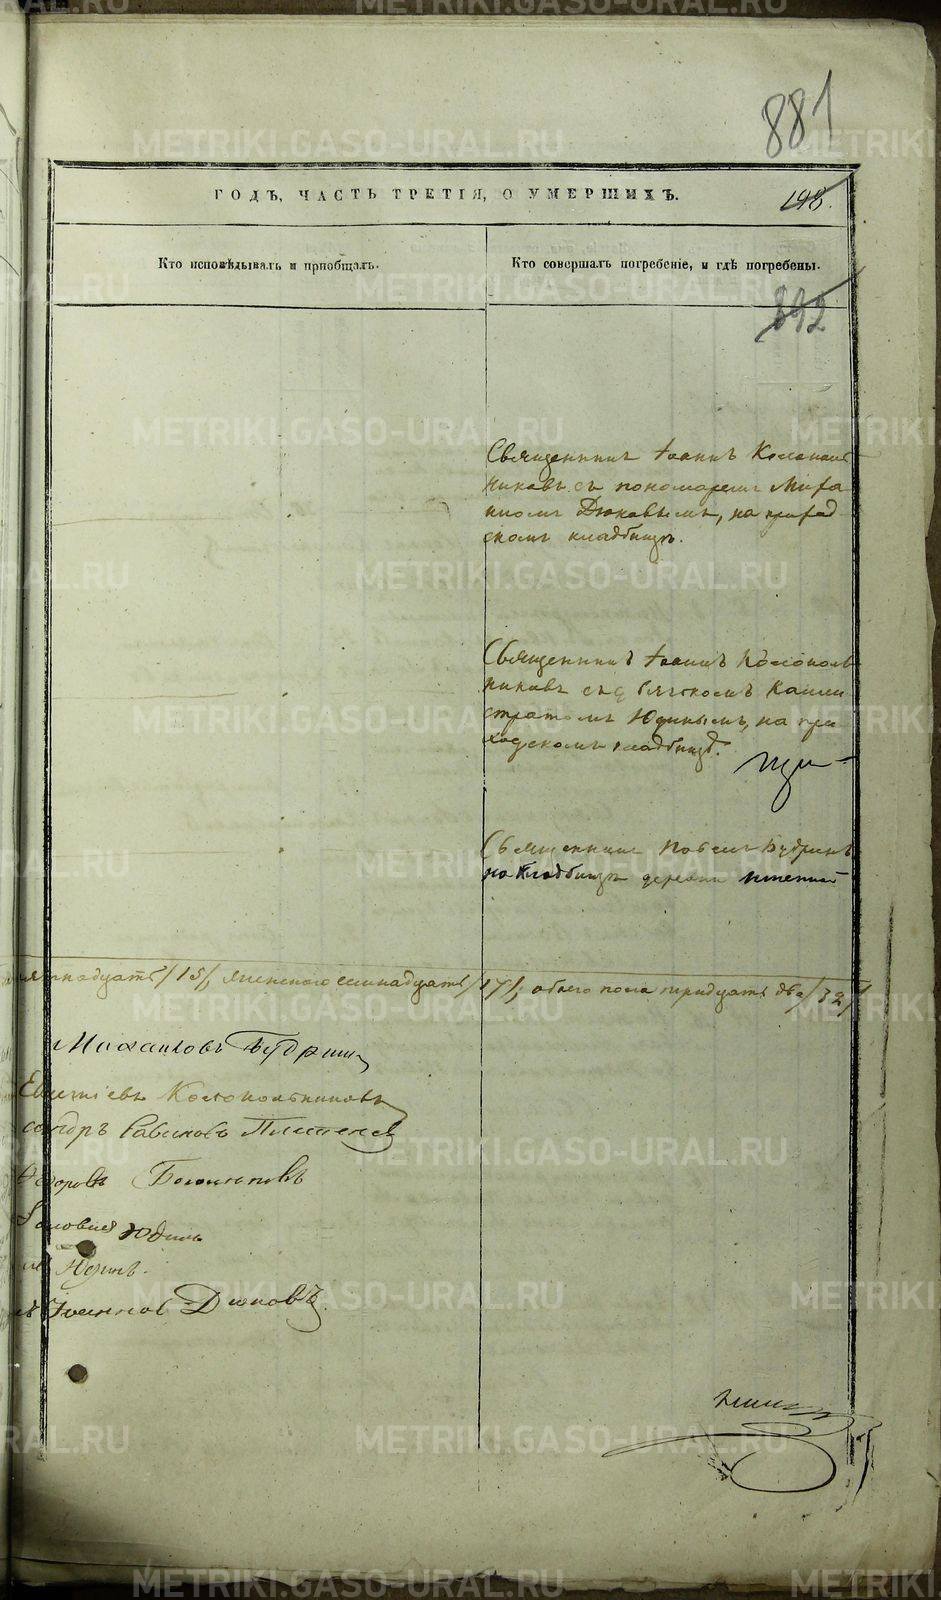 881
ГОДЪ, ЧАСТЬ ТРЕТІЯ, О УМЕРШИХЪ.
198.
Кто исповѣдывалъ и пріобщалъ.
Кто совершалъ погребеніе, и гдѣ погребены.
392
Священникъ Іоаннъ Колоколь
никовъ съ пономаремъ Миха
иломъ Дюковымъ, на приход
скомъ кладбищѣ.
Священникъ Іоаннъ Колоколь
никовъ съ Калли
стратомъ Юдинымъ, на при
ходскомъ кладбищѣ.
Священникъ Павелъ Будринъ
на кладбищѣ деревни
пятнадцать /15/, женскаго семнадцать /17/, обоего пола тридцать два /32/
Михаиловъ Будрин
Евгеніевъ Колокольниковъ
сандръ Савиновъ
Ѳедоровъ
Юдинъ
Юдинъ.
ъ Іоанновъ Дюковъ.
METRIKI.GASO-URAL.RU